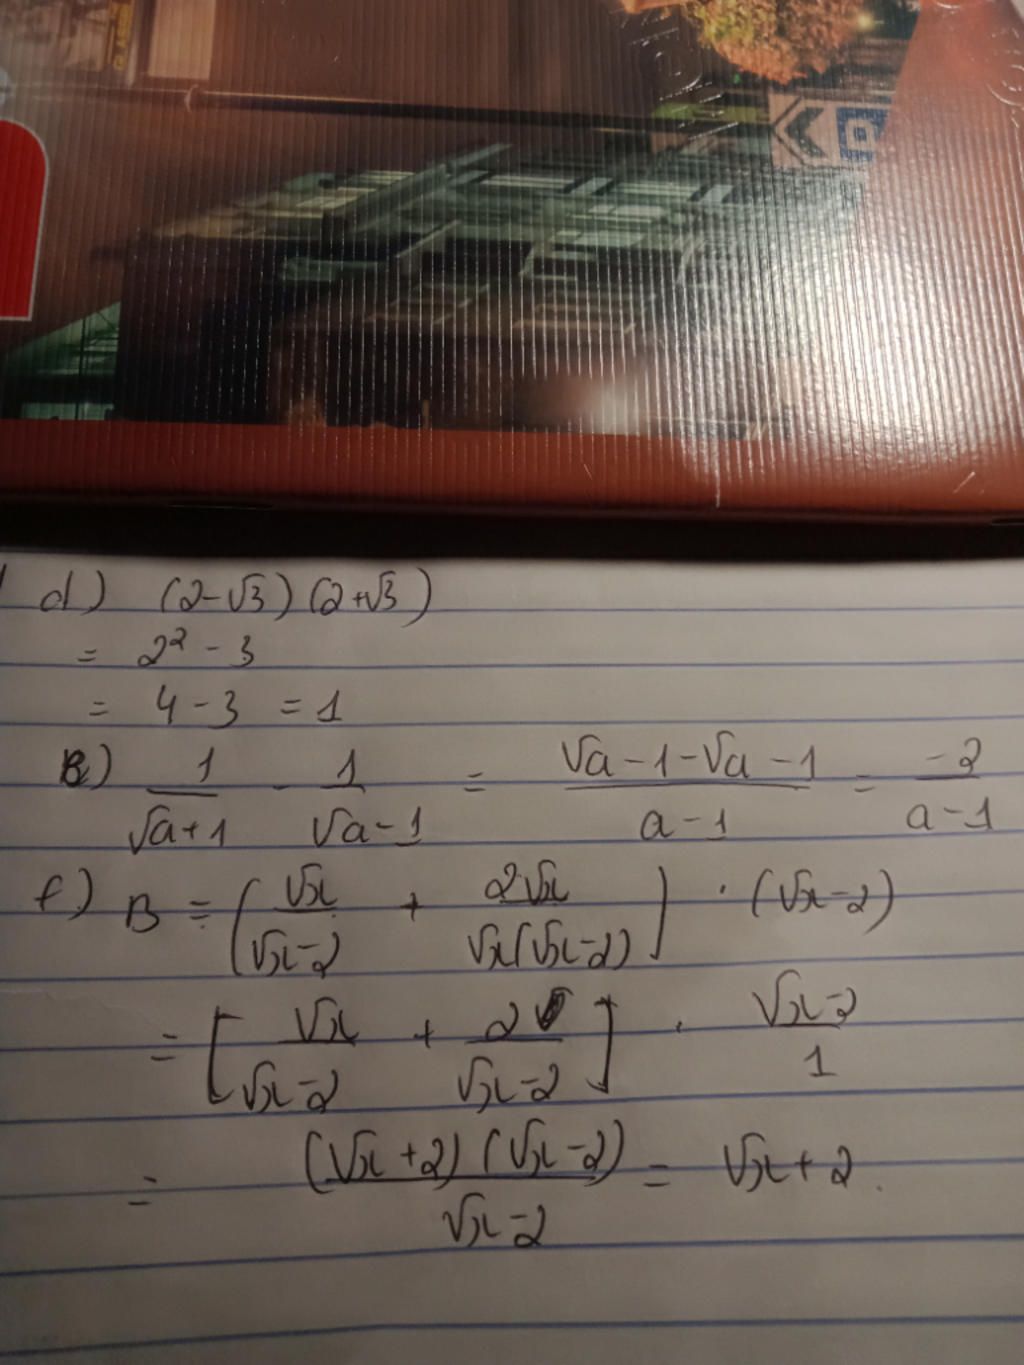 d) (2-√3)(2+√3)
= 2² - 3
= 4 - 3 = 1
e) 1/(√a+1) - 1/(√a-1) = (√a-1-√a-1)/(a-1) = -2/(a-1)
f) B = (√x/(√x-2) + 2√x/(√x(√x-2))] · (√x-2)
= [√x/(√x-2) + 2/(√x-2)] · (√x-2)/1
= (√x+2)(√x-2)/(√x-2) = √x+2.